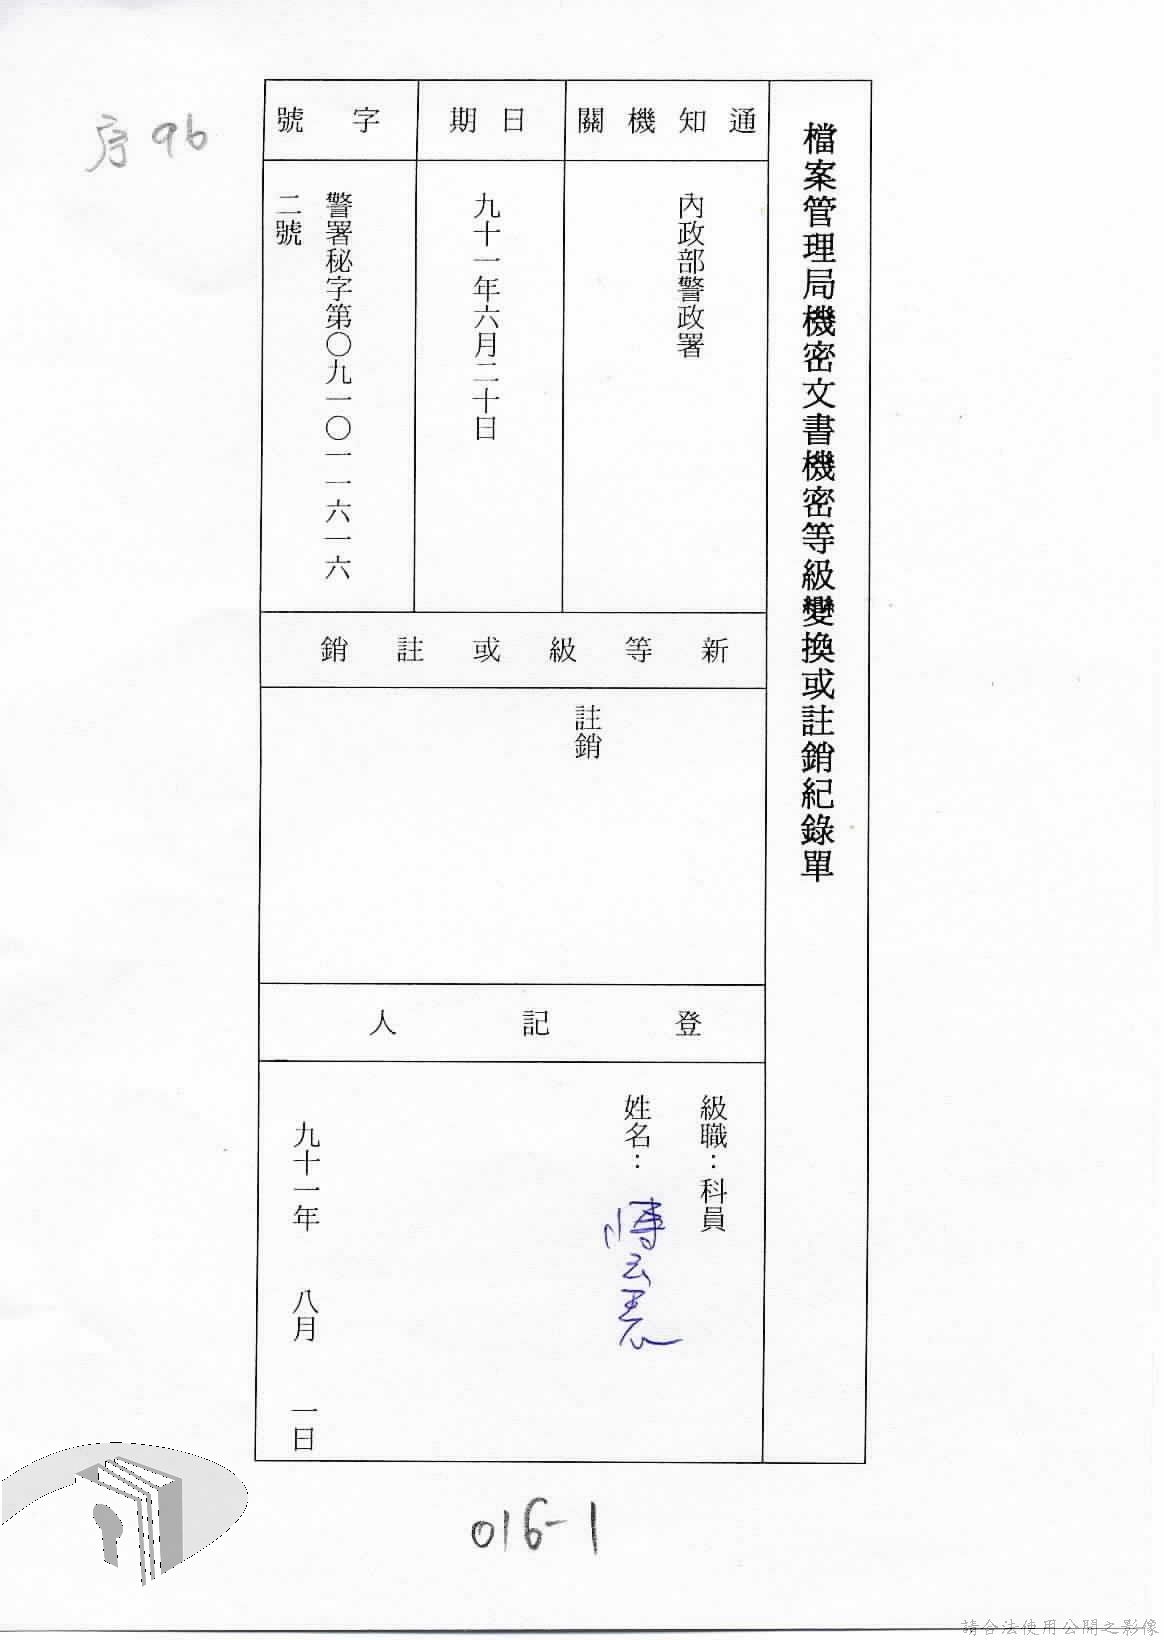 序96
檔案管理局機密文書機密等級變換或註銷紀錄單
通知機關
內政部警政署
日期
九十一年六月二十日
字號
警署秘字第〇九一〇一一六一六
二號
新等級或註銷
註銷
登記人
級職：科員
姓名：
九十一年 八月 一日
016-1
請合法使用公開之影像